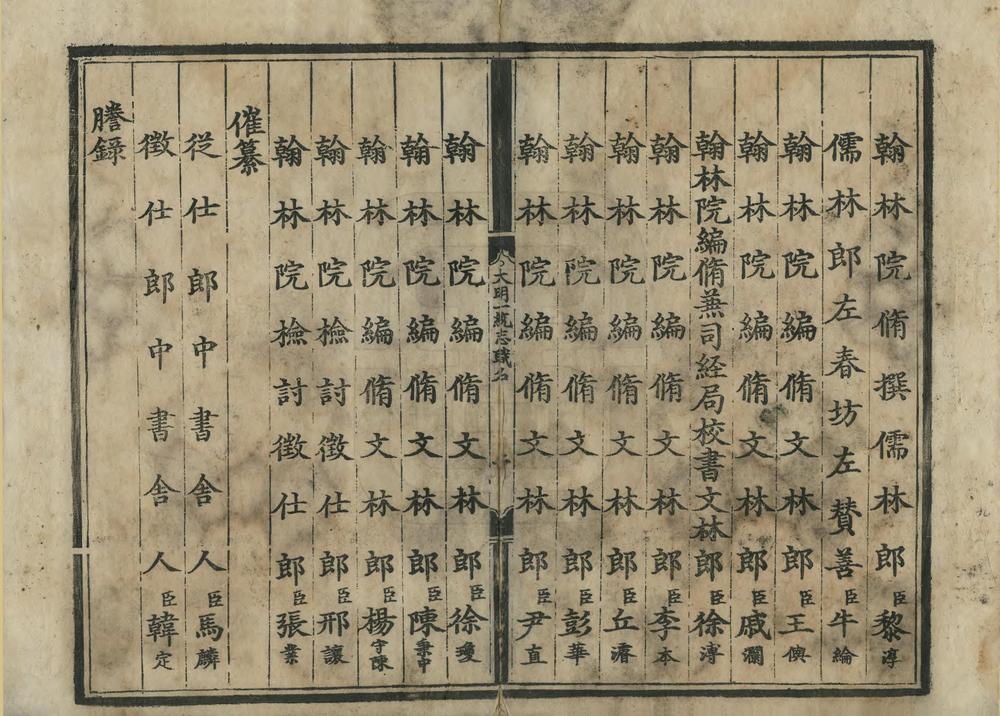 翰林院脩撰儒林郎臣黎淳
儒林郎左春坊左賛善臣牛綸
翰林院編脩文林郎臣王㒜
翰林院編脩文林郎臣戚瀾
翰林院編脩兼司経局校書文林郎臣徐溥
翰林院編脩文林郎臣李本
翰林院編脩文林郎臣丘濬
翰林院編脩文林郎臣彭華
翰林院編脩文林郎臣尹直
大明一統志職名
翰林院編脩文林郎臣徐瓊
翰林院編脩文林郎臣陳秉中
翰林院編脩文林郎臣楊守陳
翰林院檢討徴仕郎臣邢讓
翰林院檢討徴仕郎臣張業
催纂
従仕郎中書舎人臣馬麟
徴仕郎中書舎人臣韓定
謄錄